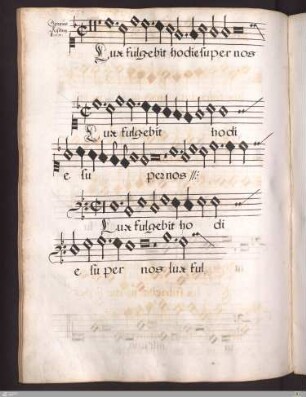 Lux fulgebit hodie super nos
Lux fulgebit hodi
e su per nos
Lux fulgebit ho di
e su per nos lux ful